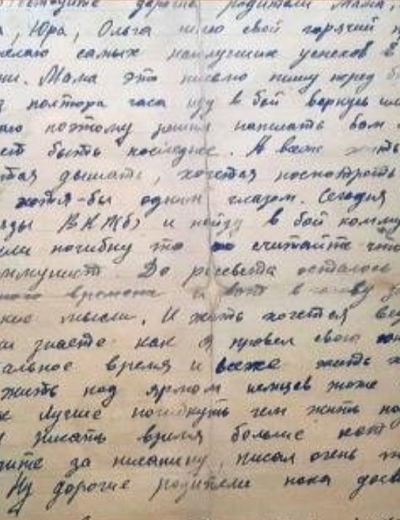 дорогие родители Мама,
, Юра, Ольга шлю свой горячий п
желаю самых наилучших успехов в
ни. Мама это письмо пишу перед б
з полтора часа иду в бой вернусь или
аю поэтому решил написать вам
ет быть последнее. А все же жить
тая дышать, хочется посмотреть
хотя-бы одним глазом. Сегодня
яды ВКП(б) и пойду в бой комму
сли погибну то считайте что
оммунист. До рассвета осталось
ного времени и вот в голову
кие мысли. И жить хочется ве
ы знаете как я провел свою юн
альное время и всеже жить х
жить под ярмом немцев тоже
к лучше погибнуть чем жить по
и писать время больше нет
дите за писанину, писал очень
Ну дорогие родители пока досв